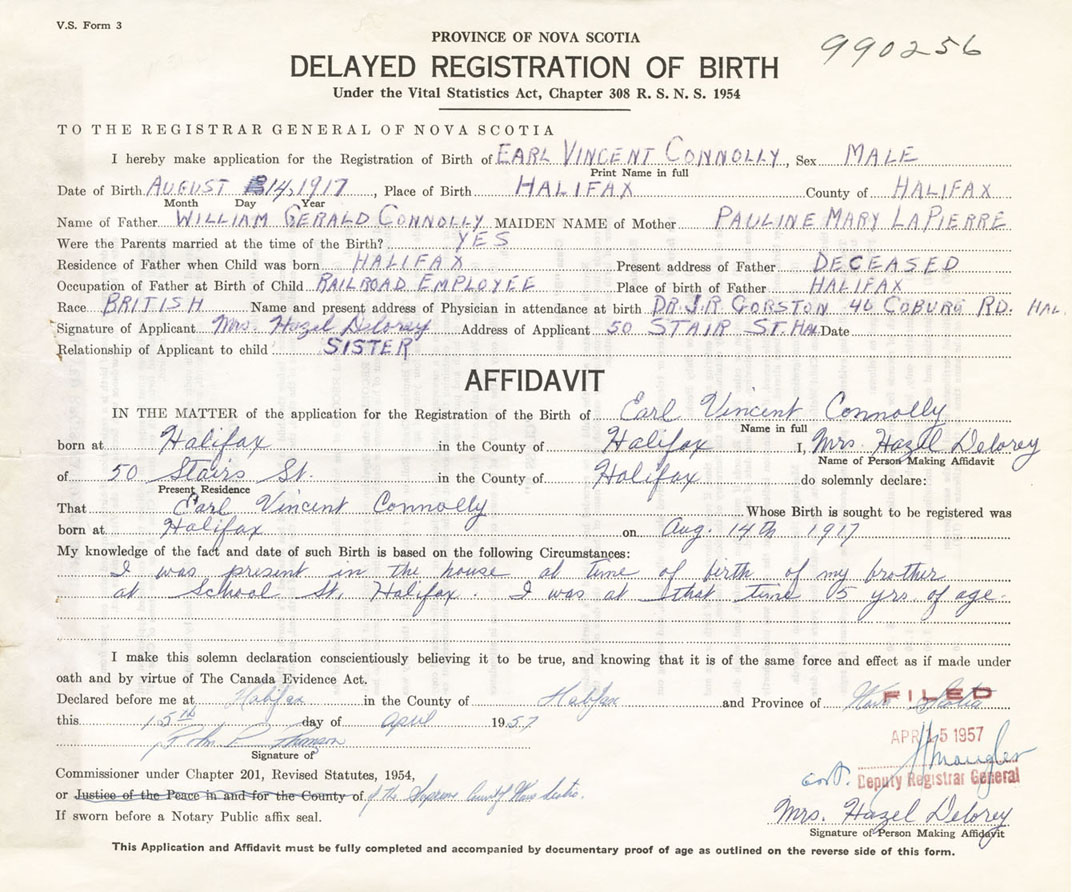 V.S. Form 3
PROVINCE OF NOVA SCOTIA
990256
DELAYED REGISTRATION OF BIRTH
Under the Vital Statistics Act, Chapter 308 R. S. N. S. 1954
TO THE REGISTRAR GENERAL OF NOVA SCOTIA
I hereby make application for the Registration of Birth of EARL VINCENT CONNOLLY, Sex MALE
Print Name in full
Date of Birth AUGUST 14, 1917, Place of Birth HALIFAX County of HALIFAX
Month Day Year
Name of Father WILLIAM GERALD CONNOLLY MAIDEN NAME of Mother PAULINE MARY LAPIERRE
Were the Parents married at the time of the Birth? YES
Residence of Father when Child was born HALIFAX Present address of Father DECEASED
Occupation of Father at Birth of Child RAILROAD EMPLOYEE Place of birth of Father HALIFAX
Race BRITISH Name and present address of Physician in attendance at birth DR. J.R GORSTON 46 COBURG RD. HAL.
Signature of Applicant Mrs. Hazel Delorey Address of Applicant 50 STAIR ST. HAL Date
Relationship of Applicant to child SISTER
AFFIDAVIT
IN THE MATTER of the application for the Registration of the Birth of Earl Vincent Connolly
Name in full
born at Halifax in the County of Halifax I, Mrs. Hazel Delorey
Name of Person Making Affidavit
of 50 Stairs St. in the County of Halifax do solemnly declare:
Present Residence
That Earl Vincent Connolly Whose Birth is sought to be registered was
born at Halifax on Aug. 14th 1917
My knowledge of the fact and date of such Birth is based on the following Circumstances:
I was present in the house at time of birth of my brother
at School St. Halifax. I was at that time 15 yrs. of age.
I make this solemn declaration conscientiously believing it to be true, and knowing that it is of the same force and effect as if made under
oath and by virtue of The Canada Evidence Act.
Declared before me at Halifax in the County of Halifax and Province of Nova Scotia
FILED
this 15th day of April 1957
APR 15 1957
John P.
Signature of
Commissioner under Chapter 201, Revised Statutes, 1954,
Deputy Registrar General
or Justice of the Peace in and for the County of of the Supreme Court of Nova Scotia.
If sworn before a Notary Public affix seal.
Mrs. Hazel Delorey
Signature of Person Making Affidavit
This Application and Affidavit must be fully completed and accompanied by documentary proof of age as outlined on the reverse side of this form.